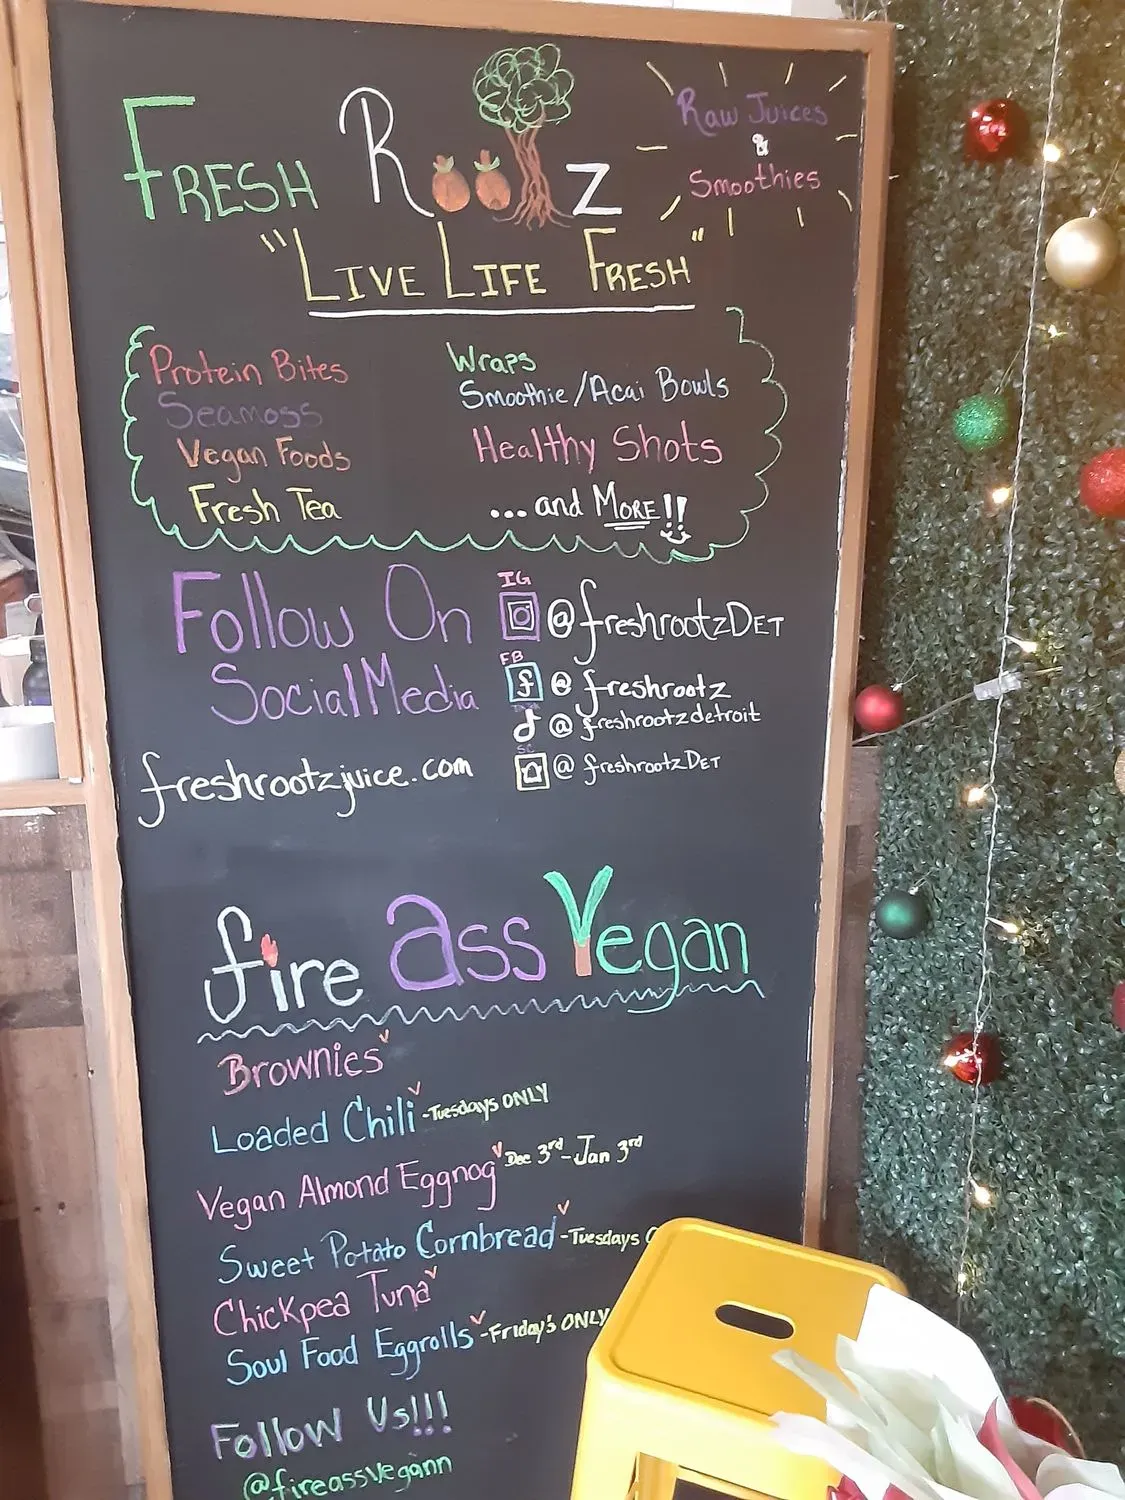 FRESH ROOTZ
Raw Juices
&
Smoothies
"LIVE LIFE FRESH"
Protein Bites
Seamoss
Vegan Foods
Fresh Tea
Wraps
Smoothie/Acai Bowls
Healthy Shots
... and MORE!!
Follow On
Social Media
IG
@freshrootzDET
FB
f @freshrootz
@freshrootzdetroit
SC
@freshrootzDET
freshrootzjuice.com
fire Ass Vegan
Brownies
Loaded Chili -Tuesdays ONLY
Vegan Almond Eggnog Dec 3rd-Jan 3rd
Sweet Potato Cornbread -Tuesdays
Chickpea Tuna
Soul Food Eggrolls -Friday's ONLY
Follow Us!!!
@fireassvegann